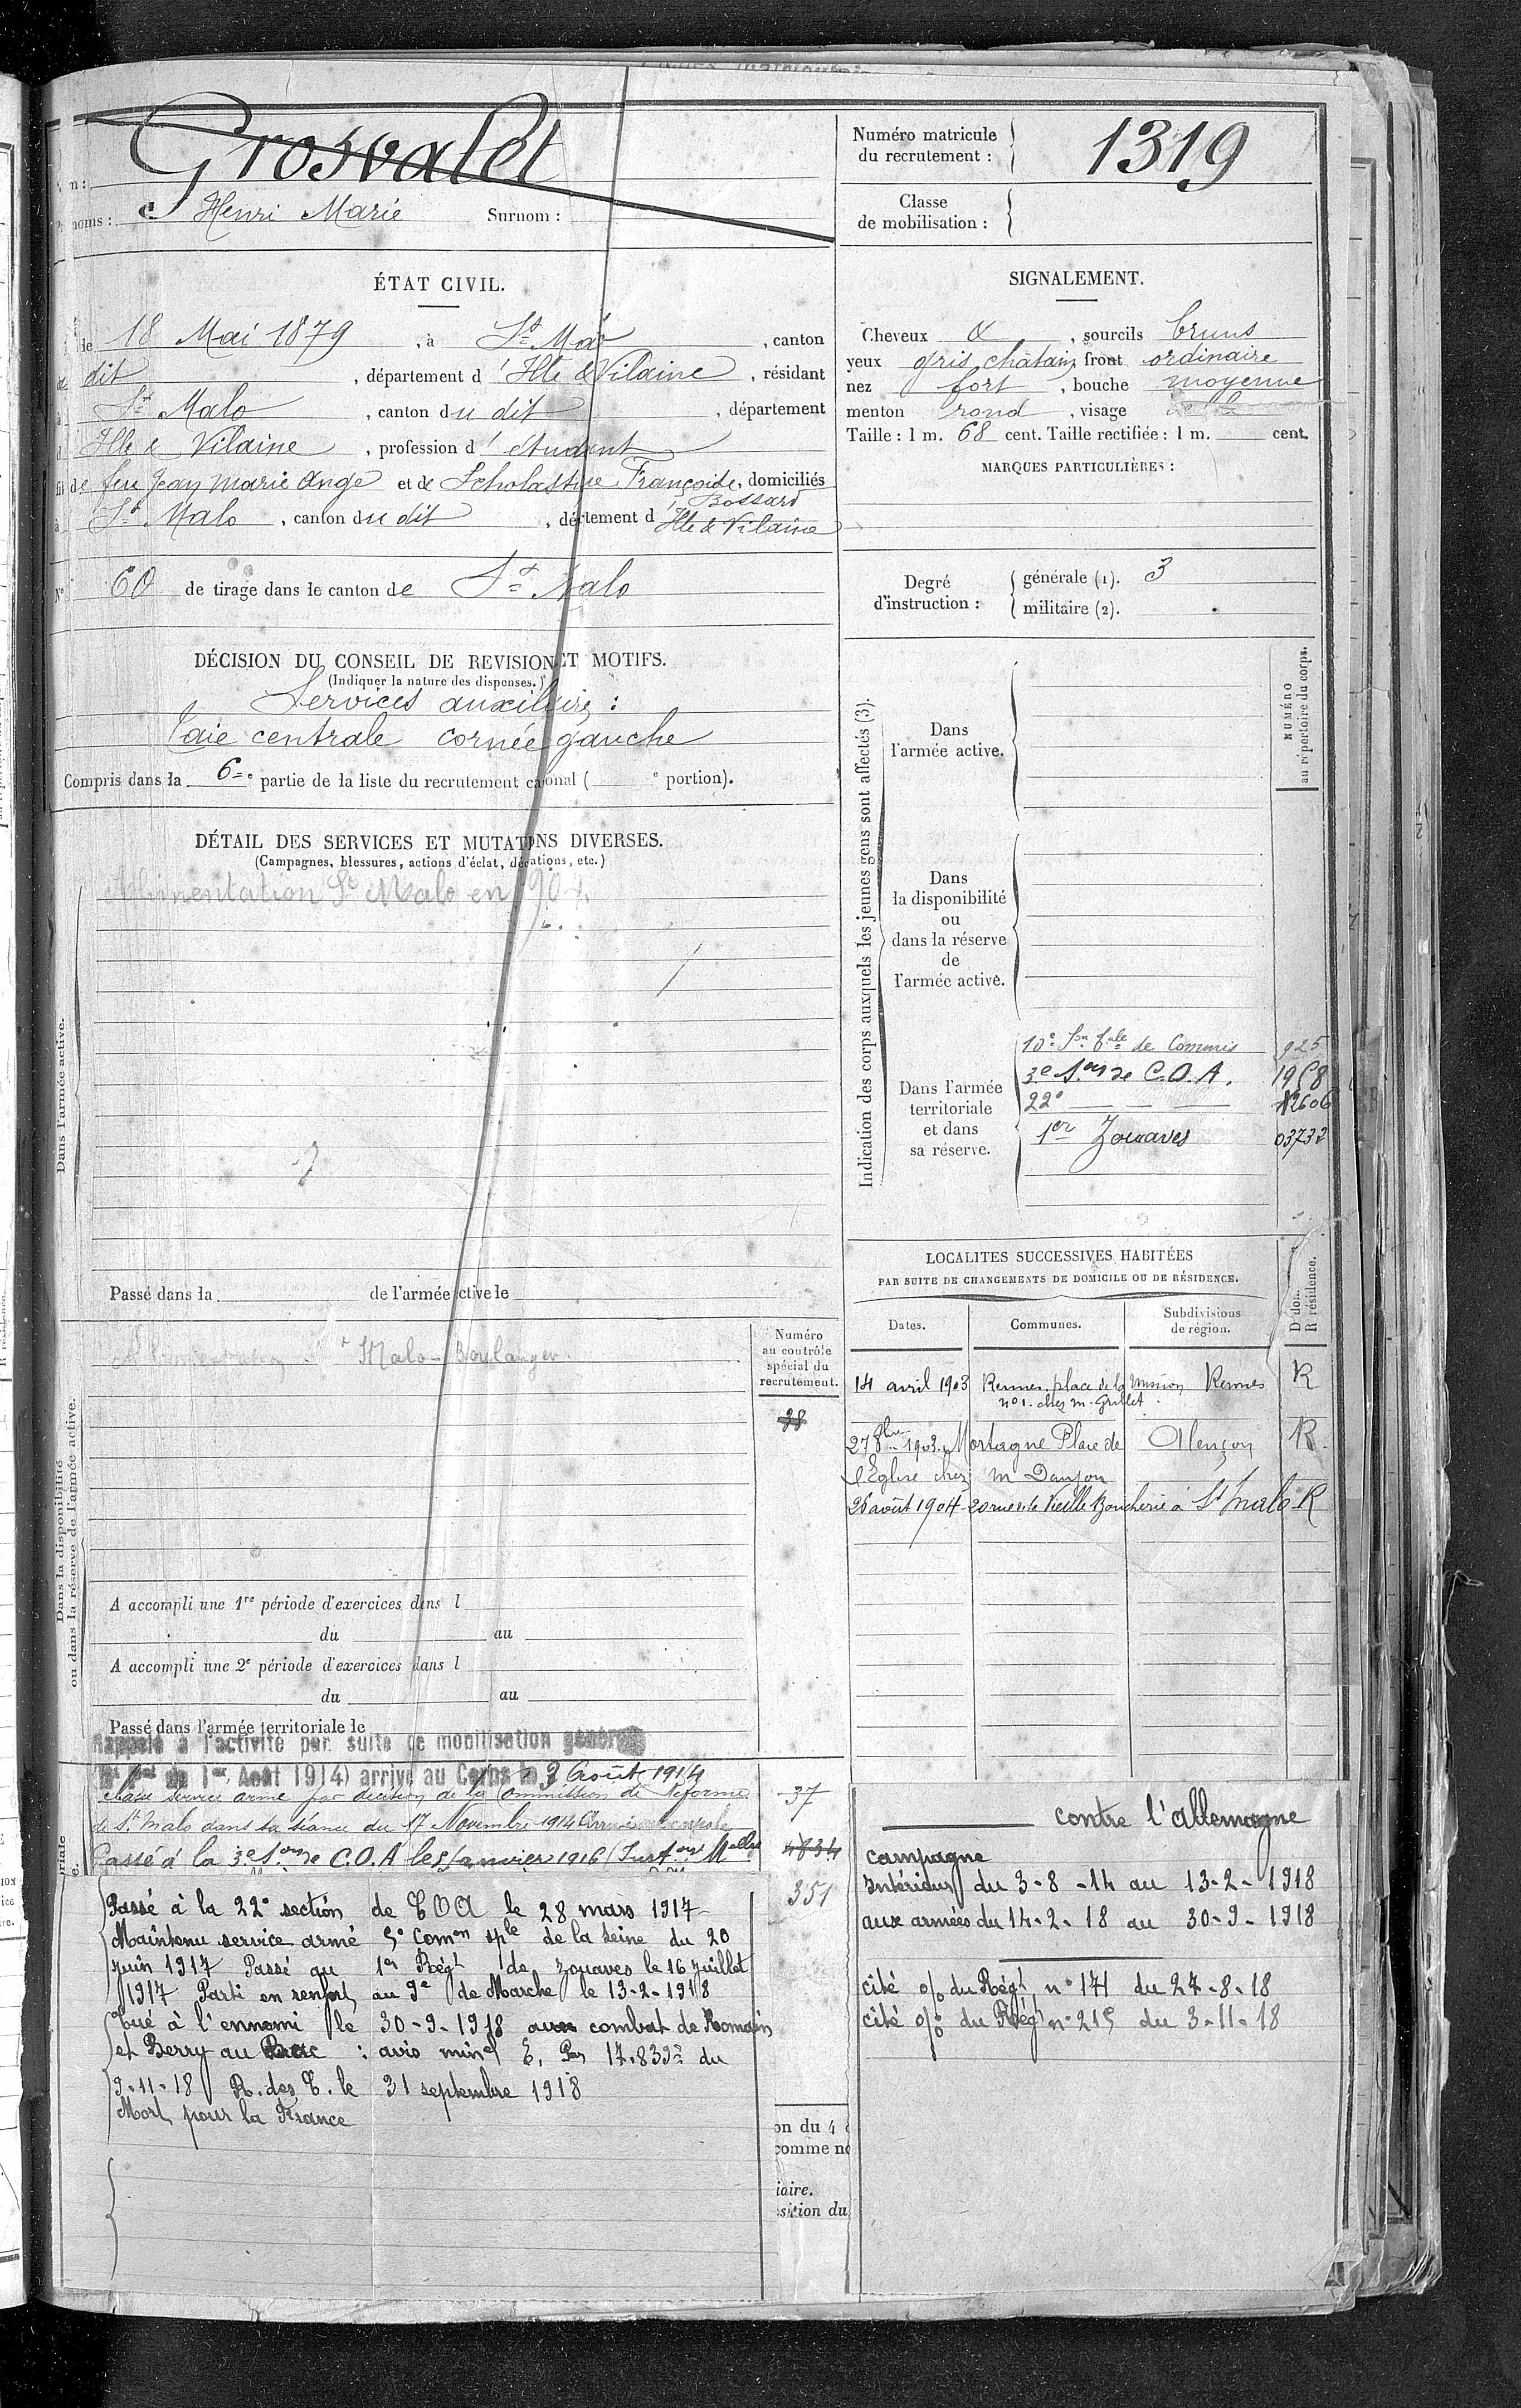 Grosvalet
noms : Henri Marie Surnom :
Numéro matricule
du recrutement :
1319
Classe
de mobilisation :
ÉTAT CIVIL.
le 18 Mai 1879 , à St Malo , canton
dit , département d'Ille & Vilaine , résidant
à St Malo , canton du dit , département
d Ille & Vilaine , profession d'étudiant
fils de feu Jean Marie Ange et de Scholastique Françoise, domiciliés
Bossard
à St Malo , canton du dit , département d'Ille & Vilaine
N° 60 de tirage dans le canton de St Malo
DÉCISION DU CONSEIL DE REVISION ET MOTIFS.
(Indiquer la nature des dispenses.)
Services auxiliaires :
Taie centrale cornée gauche
Compris dans la 6e partie de la liste du recrutement cantonal ( e portion).
DÉTAIL DES SERVICES ET MUTATIONS DIVERSES.
(Campagnes, blessures, actions d'éclat, décorations, etc.)
Alimentation St Malo en 190
Dans l'armée active.
Passé dans la de l'armée active le
Malo - Boulanger
Numéro
au contrôle
spécial du
recrutement.
38
Dans la disponibilité
ou dans la réserve de l'armée active.
A accompli une 1re période d'exercices dans l
du au
A accompli une 2e période d'exercices dans l
du au
Passé dans l'armée territoriale le
Rappelé à l'activité par suite de mobilisation générale
du 1er Août 1914) arrivé au Corps le 3 Août 1914
Classé service armé par décision de la Commission de Réforme 37
de St Malo dans sa séance du 17 Novembre 1914
Passé à la 3e Son de C.O.A le 1 Janvier 1916 4834
Passé à la 22e section de COA le 28 mars 1917 351
Maintenu service armé 5e Comon sple de la Seine du 20
juin 1917 Passé au 1er Régt de zouaves le 16 juillet
1917 Parti en renfort au 9e de Marche le 13-2-1918
Tué à l'ennemi le 30-9-1918 aux combat de Romain
et Berry au Bac : avis minel E. Pn 17.839 du
9-11-18 R. des C. le 31 septembre 1918
Mort pour la France
on du 4
comme no
iaire.
sition du
SIGNALEMENT.
Cheveux & , sourcils bruns
yeux gris chatain, front ordinaire
nez fort , bouche moyenne
menton rond , visage
Taille : 1 m. 68 cent. Taille rectifiée : 1 m. cent.
MARQUES PARTICULIÈRES :
Degré
d'instruction :
générale (1). 3
militaire (2).
Indication des corps auxquels les jeunes gens sont affectés (3).
NUMÉRO
au répertoire du corps.
Dans
l'armée active.
Dans
la disponibilité
ou
dans la réserve
de
l'armée active.
Dans l'armée
territoriale
et dans
sa réserve.
10e Son tale de Commis 925
3e Son de C.O.A. 1958
22e 12606
1er Zouaves 03732
LOCALITES SUCCESSIVES HABITÉES
PAR SUITE DE CHANGEMENTS DE DOMICILE OU DE RÉSIDENCE.
Dates. Communes. Subdivisions
de région.
D dom.
R résidence.
14 avril 1903 Rennes place de la Mission Rennes R
n° 1. chez m. Grillet
27 8bre 1903. Mortagne Place de Alençon R.
l'Eglise chez m Danjou
26 août 1904 20 rue de la Vieille Boucherie à St Malo R
contre l'allemagne
campagne
Intérieur du 3-8-14 au 13-2-1918
aux armées du 14-2-18 au 30-9-1918
cité o/ du Régt n° 171 du 27-8-18
cité o/ du Régt n° 215 du 3-11-18